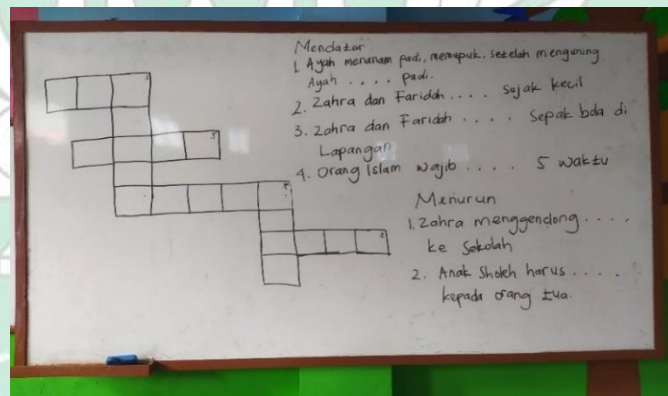 Mendatar
1. Ayah menanam padi, memupuk, setelah menguning
Ayah .... padi.
2. Zahra dan Faridah .... sejak kecil
3. Zahra dan Faridah .... sepak bola di
Lapangan
4. Orang Islam wajib .... 5 waktu
Menurun
1. Zahra menggendong ....
ke sekolah
2. Anak Sholeh harus ....
kepada orang tua.